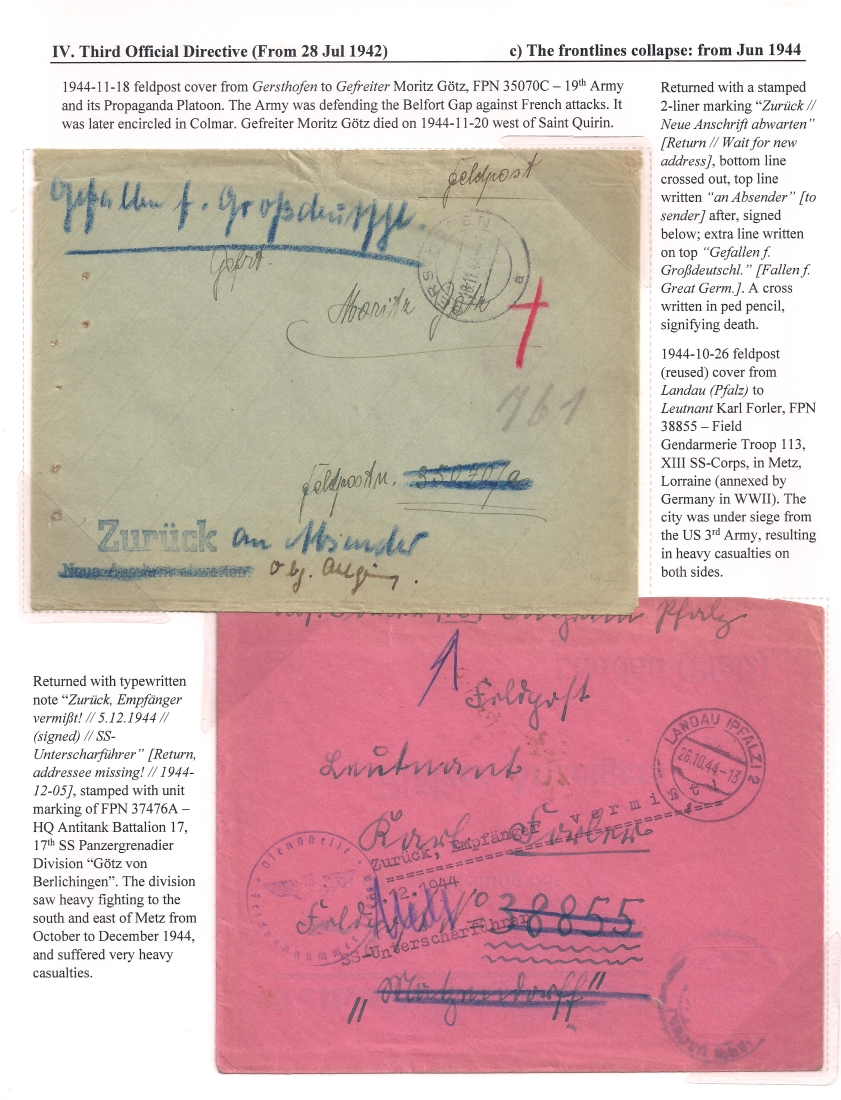 IV. Third Official Directive (From 28 Jul 1942)
c) The frontlines collapse: from Jun 1944
1944-11-18 feldpost cover from Gersthofen to Gefreiter Moritz Götz, FPN 35070C – 19th Army
and its Propaganda Platoon. The Army was defending the Belfort Gap against French attacks. It
was later encircled in Colmar. Gefreiter Moritz Götz died on 1944-11-20 west of Saint Quirin.
Returned with a stamped
2-liner marking “Zurück //
Neue Anschrift abwarten”
[Return // Wait for new
address], bottom line
crossed out, top line
written “an Absender” [to
sender] after, signed
below; extra line written
on top “Gefallen f.
Großdeutschl.” [Fallen f.
Great Germ.]. A cross
written in ped pencil,
signifying death.
1944-10-26 feldpost
(reused) cover from
Landau (Pfalz) to
Leutnant Karl Forler, FPN
38855 – Field
Gendarmerie Troop 113,
XIII SS-Corps, in Metz,
Lorraine (annexed by
Germany in WWII). The
city was under siege from
the US 3rd Army, resulting
in heavy casualties on
both sides.
Feldpost
Gefallen f. Großdeutschl.
Gefrt.
Moritz Götz
761
Feldpostn. 35070/c
Zurück an Absender
Neue Anschrift abwarten
Pfalz
Feldpost
LANDAU (PFALZ) 2
26.10.44.-13
Leutnant
Karl Forler
Zurück, Empfänger vermißt!
.12.1944
38855
SS-Unterscharführer
Dienststelle
Feldpostnummer
Returned with typewritten
note “Zurück, Empfänger
vermißt! // 5.12.1944 //
(signed) // SS-
Unterscharführer” [Return,
addressee missing! // 1944-
12-05], stamped with unit
marking of FPN 37476A –
HQ Antitank Battalion 17,
17th SS Panzergrenadier
Division “Götz von
Berlichingen”. The division
saw heavy fighting to the
south and east of Metz from
October to December 1944,
and suffered very heavy
casualties.